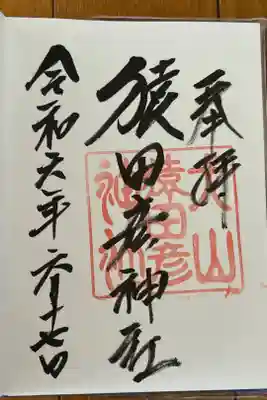 奉拝
犬山
猿田彦
神社
猿田彦神社
令和元年六月十七日